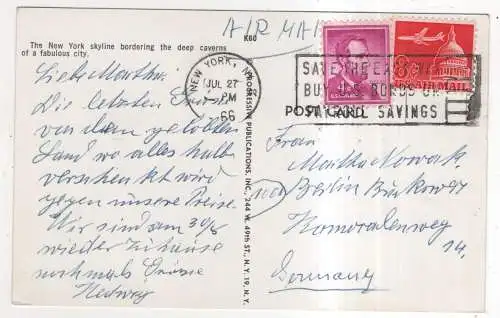 AIR MAIL
K60
The New York skyline bordering the deep caverns
of a fabulous city.
NEW YORK, N.Y.
JUL 27
PM
66
SAVE THE EASY WAY
BUY U.S. BONDS ON
PAYROLL SAVINGS
8c
AIR MAIL
POST CARD
PROGRESSIVE PUBLICATIONS, INC., 244 W. 49th ST., N.Y. 19, N.Y.
Liebe Martha!
Die letzten Grüsse
aus dem gelobten
Land wo alles halb
verschenkt wird
gegen unsere Preise.
Wir sind am 30/8
wieder zu Hause
nochmals Grüsse
Hedwig
Frau
Martha Nowak
1000 Berlin Buckower
Komoralenweg
14.
Germany